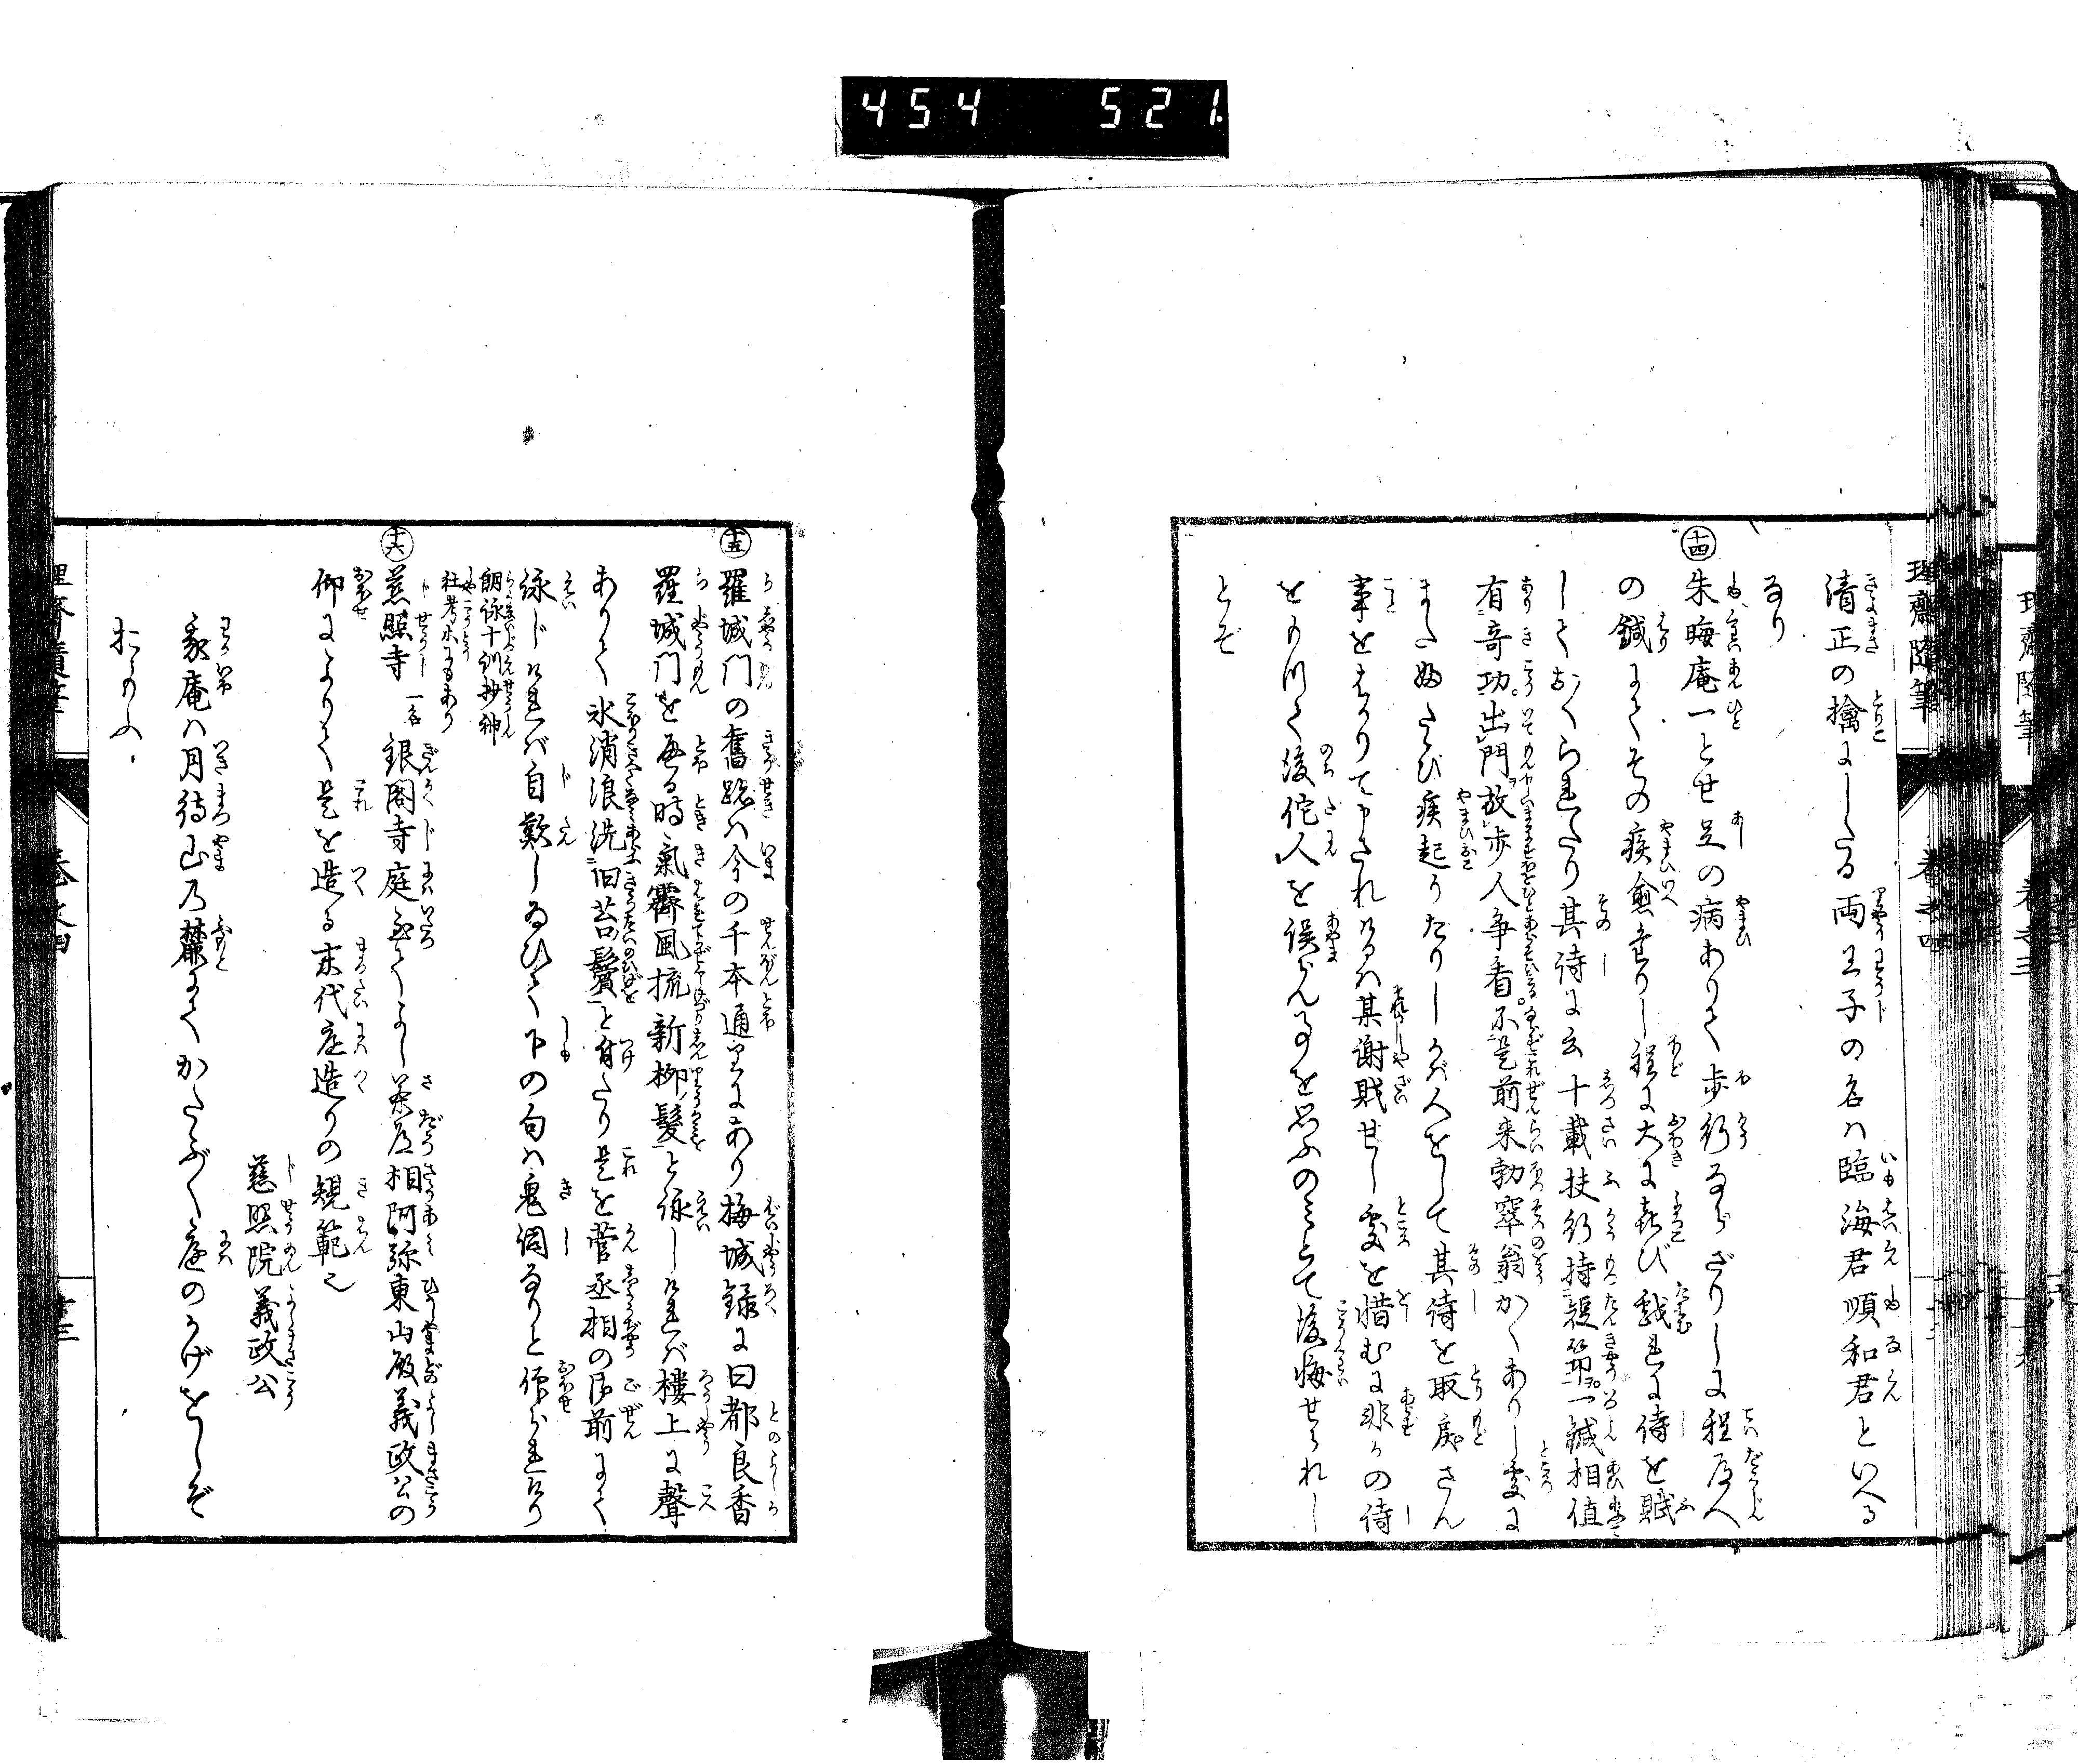 454 521.
清正の擒にしたる両王子の名は臨海君順和君といへる
なり
十四 朱晦庵一とせ足の病ありて歩行ならざりしに程道人
の鍼にてその疾愈たりし程に大に喜び戯れに詩を賦
しておくられたり其詩に云十載扶行持短筇一鍼相値
有奇功。出門放歩人争看。不是前来勃窣翁かくありし処に
また再たび疾起りたりしかば人をして其詩を取戻さん
事をはかりて申されけるは某謝財せし処を惜むに非らの詩
をもつて後佗人を誤らん事を思ふのみとて後悔せられし
とぞ
十五 羅城門の旧跡は今の千本通にあり梅城録に曰都良香
羅城門を過る時氣霽風梳新柳髪と詠しければ楼上に聲
ありて氷消浪洗旧苔鬚と付たり是を菅丞相の御前にて
詠じければ自歎しゐひて下の句は鬼詞なりと仰られけり
朗詠十訓抄神
社考ホにもあり
十六 慈照寺 一名 銀閣寺庭至てよし茶道相阿弥東山殿義政公の
仰によりて是を造る末代庭造りの規範也
慈照院義政公
我庵は月待山乃麓にてかたぶく庭のかげをしぞ
おもふ
理齋隨筆 巻之四